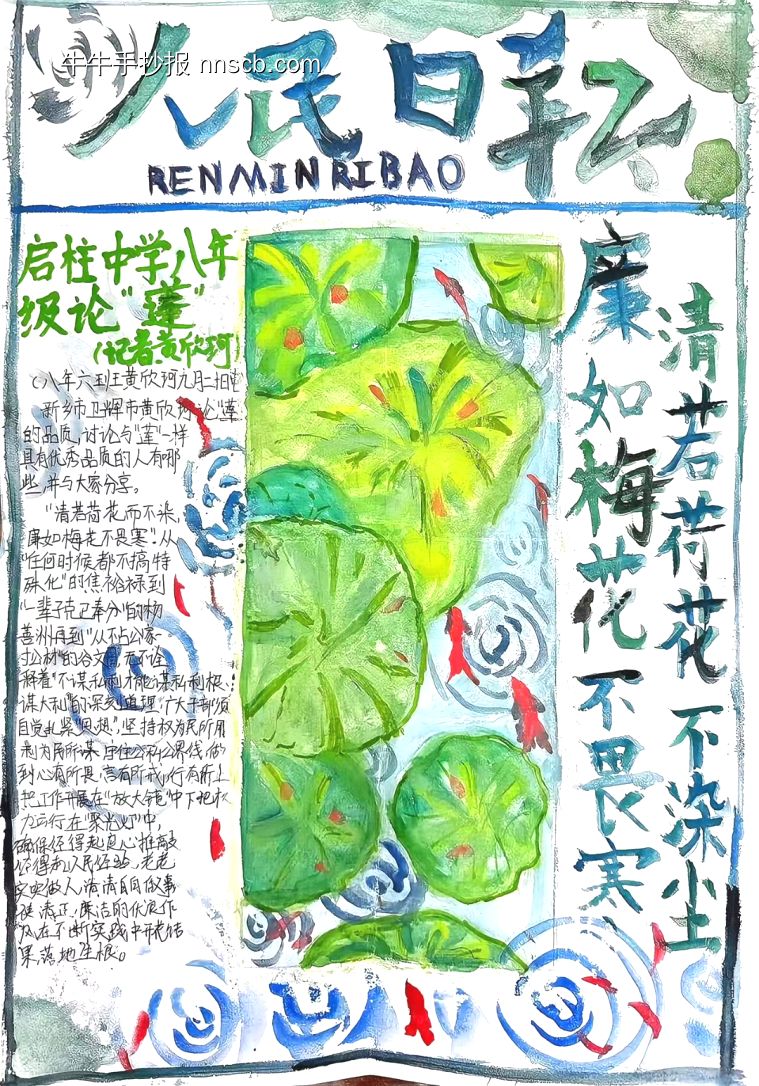 牛牛手抄报 nnscb.com
人民日报
RENMINRIBAO
启柱中学八年
级论“莲”
（记者黄欣珂）
新乡市卫辉市黄欣珂论“莲”
的品质，讨论与“莲”一样
具有优秀品质的人有哪
些，并与大家分享。
“清若荷花而不染，
廉如梅花不畏寒”。从
“任何时候都不搞特
殊化”的焦裕禄到
“一辈子克己奉公”的杨
善洲，再到“从不占公家一
寸公材”的谷文昌，无不诠
释着“不谋私利才能谋私利根、
谋大利”的深刻道理。广大干部须
自觉扎紧“思想”，坚持权为民所用
利为民所谋，守住公私公界线，做
到心有所畏、言有所戒、行有所止
把工作开展在“放大镜”中下把权
力运行在“聚光灯”中，
确保经得起良心推敲
实做人、清清白白做事
从在不断实践中开花结
果，落地生根。
清若荷花不染尘
廉如梅花不畏寒